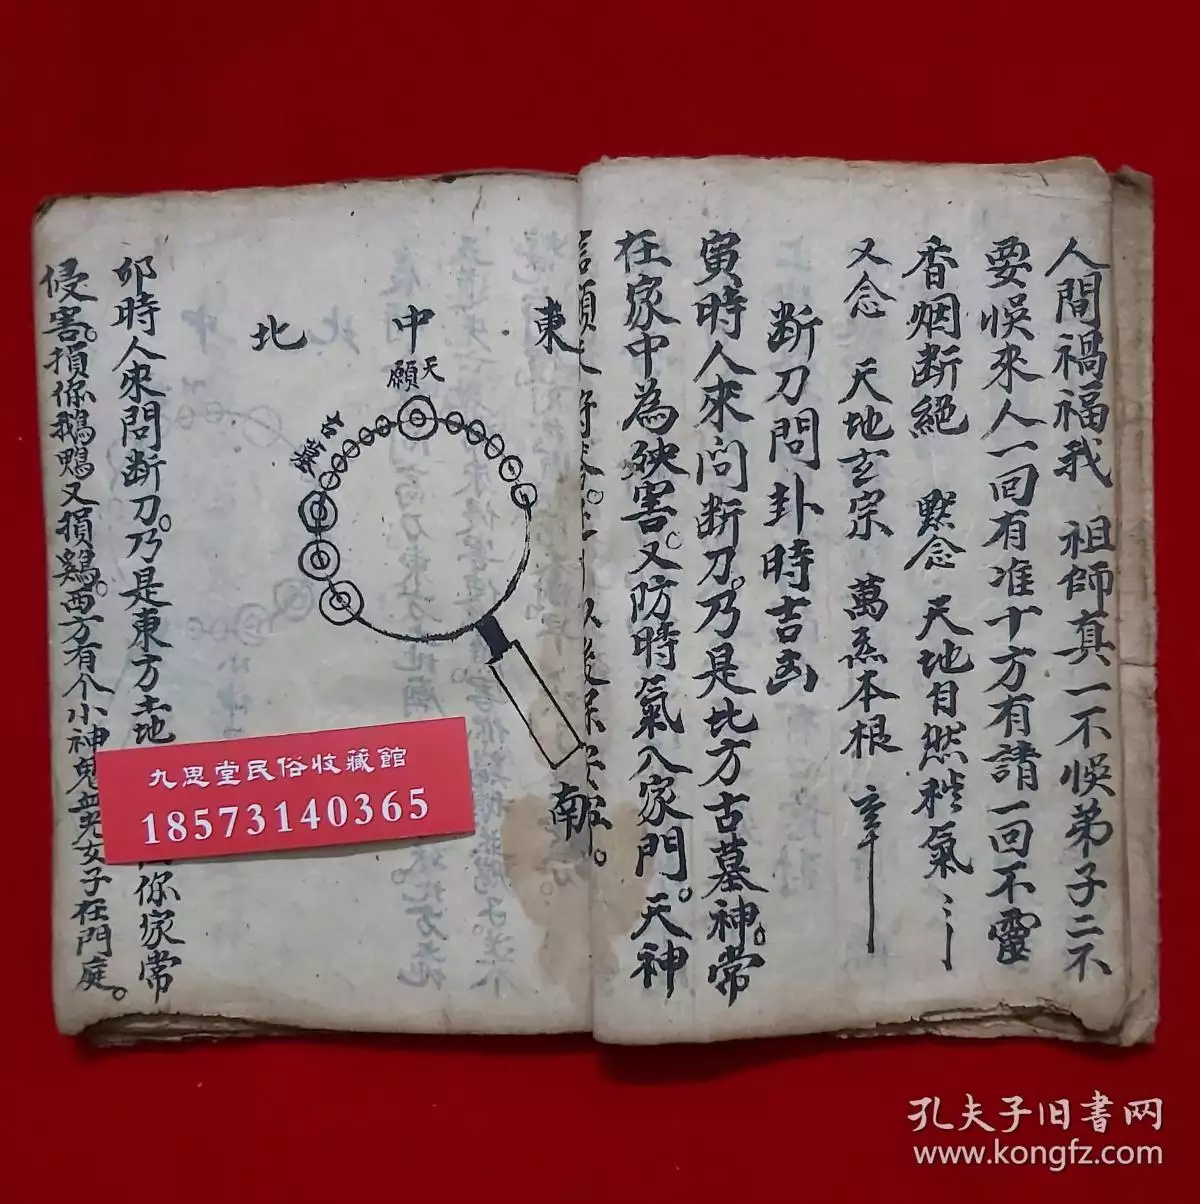 人間禍福我 祖師真一不悞弟子二不
要悞來人一回有准十方有請一回不靈
香烟断絕 默念 天地自然
氣
又念 天地玄宗 萬炁本根
断刀問卦時吉凶
寅時人來問断刀。乃是北方古墓神。常
在家中為殃害。又防時氣入家門。天神
東
中
北
天
願
古墓
南
卯時人來問断刀。乃是東方土地
你家常
侵害。損你鵝鴨又損鷄。西方有个小神鬼
女子在門庭。
九思堂民俗收藏館
18573140365
孔夫子旧書网
www.kongfz.com